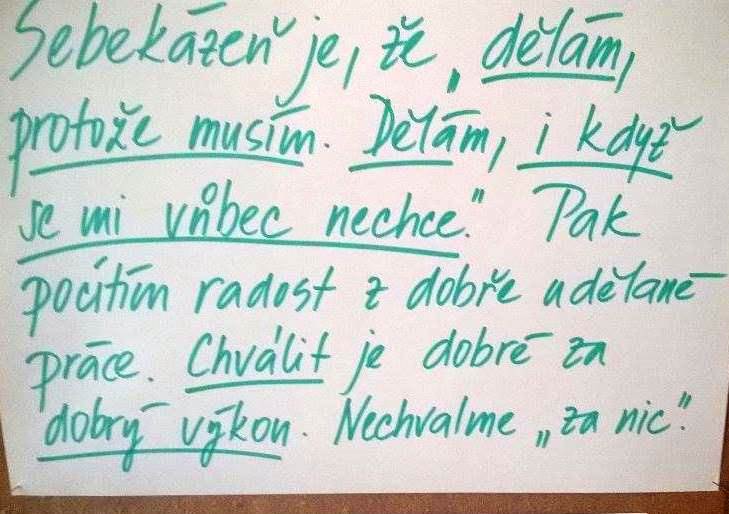 Sebekázeň je, že „dělám,
protože musím. Dělám, i když
se mi vůbec nechce." Pak
pocítím radost z dobře udělané
práce. Chválit je dobré za
dobrý výkon. Nechvalme „za nic".